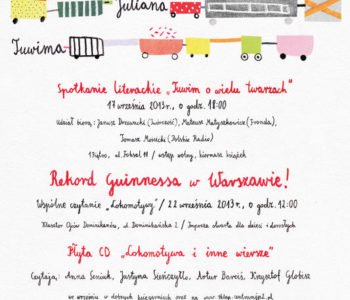 Juliana
Tuwima
Spotkanie literackie „Tuwim o wielu twarzach"
17 września 2013r., o godz. 18:00
Udział biorą: Janusz Drzewucki (Twórczość), Mateusz Matyszkowicz (Fronda),
Tomasz Mościcki (Polskie Radio)
1 Piętro, ul. Foksal 11 / wstęp wolny, kiermasz książek
Rekord Guinnessa w Warszawie!
Wspólne czytanie „Lokomotywy" / 22 września 2013r., o godz. 12:00
Klasztor Ojców Dominikanów, ul. Dominikańska 2 / Impreza otwarta dla dzieci i dorosłych
Płyta CD „Lokomotywa i inne wiersze"
Czytają: Anna Seniuk, Justyna Sieńczyłło, Artur Barciś, Krzysztof Globisz
we wrześniu w dobrych księgarniach oraz na